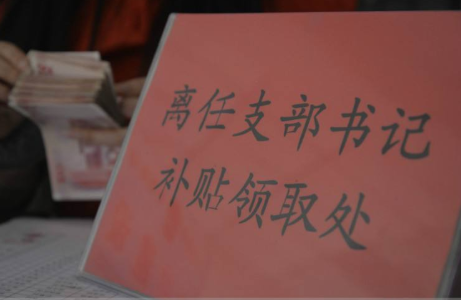 离任支部书记
补贴领取处